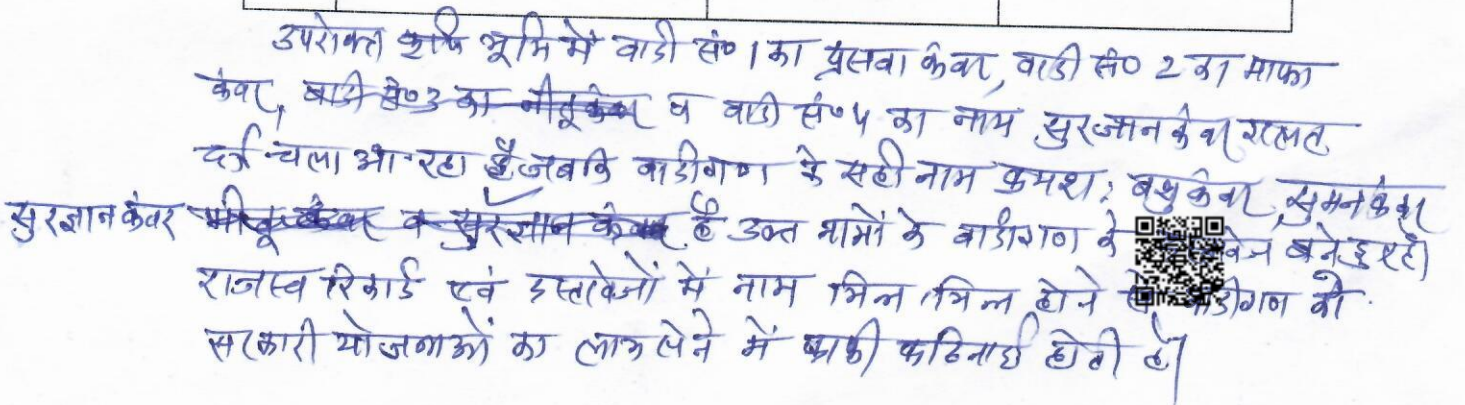 उपरोक्त कृषि भूमि में वादी सं० 1 का प्रसवा कंवर, वादी सं० 2 का माफा
कंवर, वादी सं० 3 का नीतू कंवर व वादी सं० 4 का नाम सुरज्जान कंवर गलत
दर्ज चला आ रहा है जबकि वादीगण के सही नाम क्रमश: बशु कंवर, सुमन कंवर
सुरज्ञान कंवर नीतू कंवर व सुरज्ञान कंवर है उक्त नामों के वादीगण के बने हुए है।
राजस्व रिकार्ड एवं दस्तावेजों में नाम भिन्न भिन्न होने से वादीगण को
सरकारी योजनाओं का लाभ लेने में काफी कठिनाई होती है।